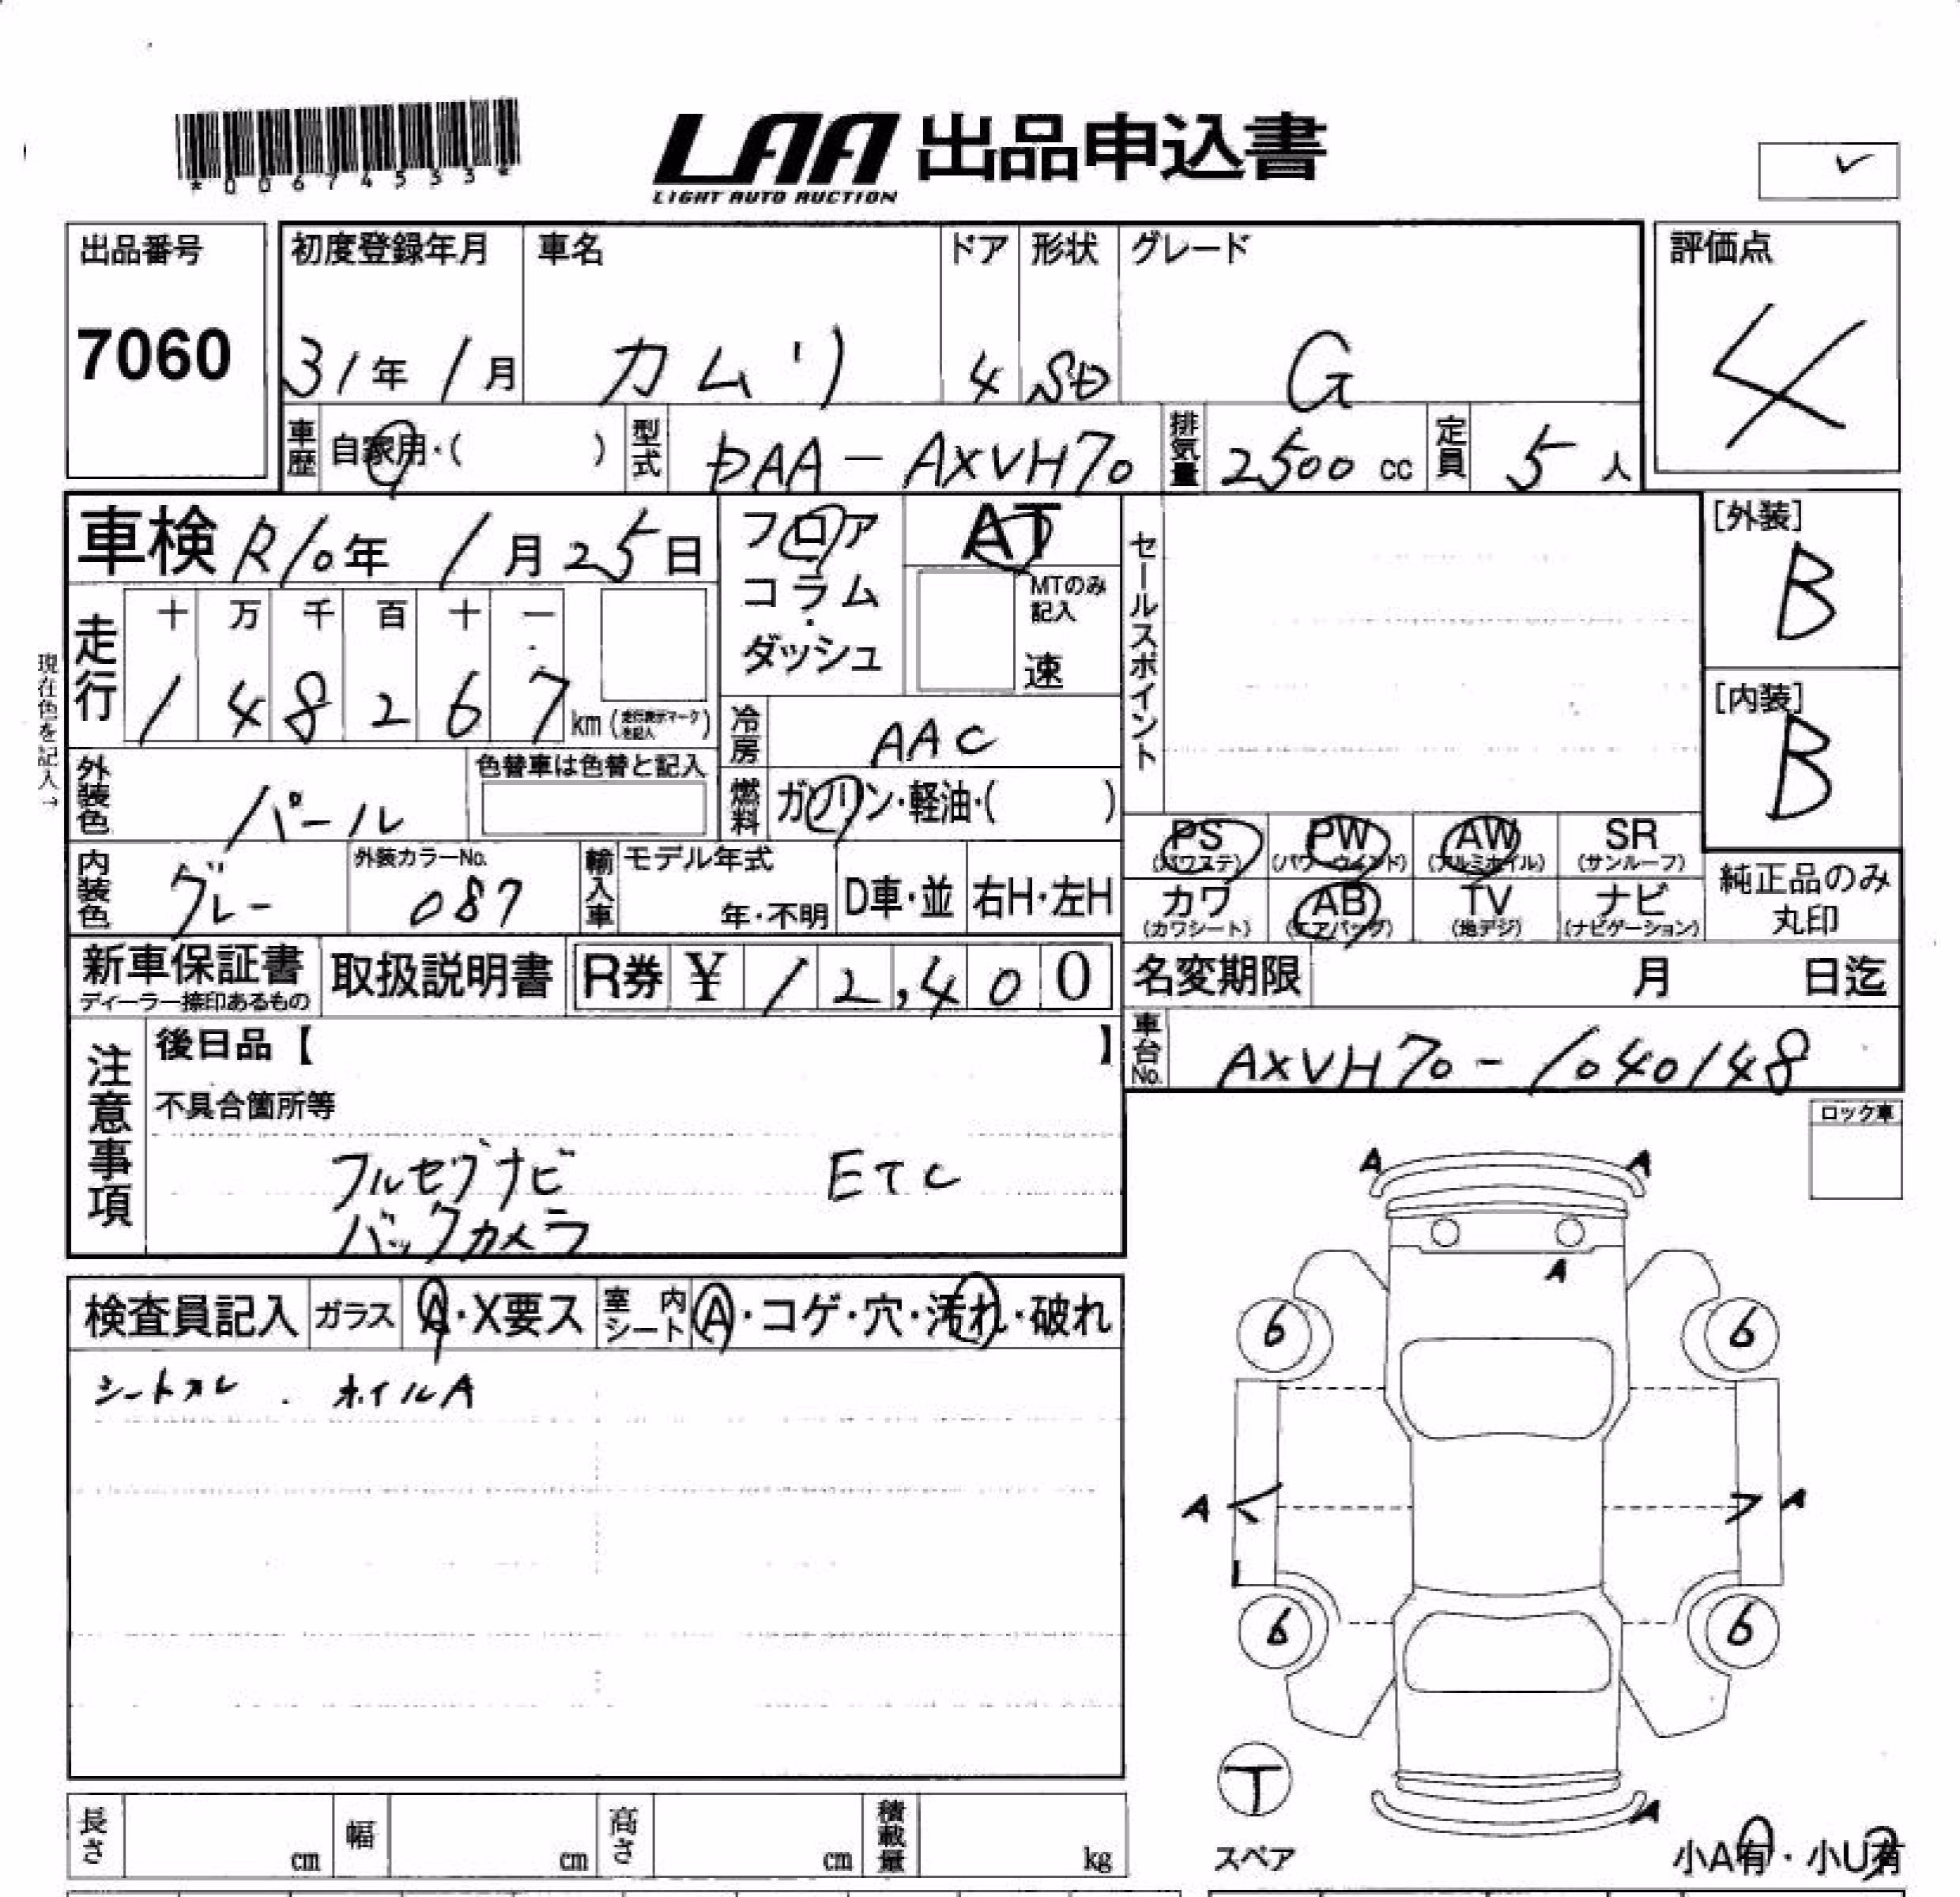 *00674533*
LAA 出品申込書
LIGHT AUTO AUCTION
✓
出品番号
7060
初度登録年月
31年 1月
車名
カムリ
ドア
4
形状
SD
グレード
G
評価点
4
車歴 自家用・( )
型式 DAA-AXVH70
排気量 2500cc
定員 5人
車検 R10年 1月25日
フロア
コラム
・
ダッシュ
AT
MTのみ
記入
速
セールスポイント
[外装]
B
[内装]
B
現在色を記入→
走行
十 万 千 百 十 一
1 4 8 2 6 7 km(走行表示マークを記入)
冷房 AAC
外装色 パール
色替車は色替と記入
燃料 ガソリン・軽油・( )
内装色 グレー
外装カラーNo.
087
輸入車
モデル年式
年・不明
D車・並
右H・左H
PS
(パワステ)
PW
(パワーウィンド)
AW
(アルミホイル)
SR
(サンルーフ)
カワ
(カワシート)
AB
(エアバッグ)
TV
(地デジ)
ナビ
(ナビゲーション)
純正品のみ
丸印
新車保証書
ディーラー捺印あるもの
取扱説明書
R券 ¥ 12,400
名変期限 月 日迄
車台No. AXVH70-1040148
注意事項
後日品【 】
不具合箇所等
フルセグナビ ETC
バックカメラ
ロック車
検査員記入
ガラス A・X要ス
室内シート A・コゲ・穴・汚れ・破れ
シートスレ . ホイルA
A A
A
6 6
A A
6 6
T
スペア
A
小A有・小U有
長さ cm
幅 cm
高さ cm
積載量 kg